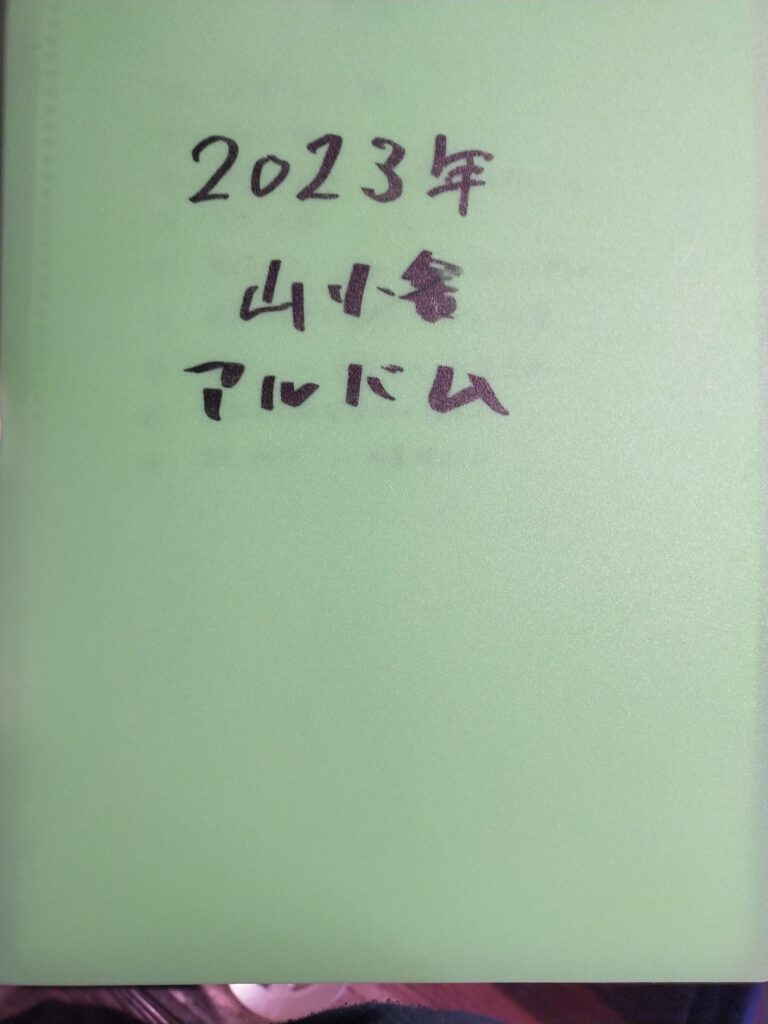 2023年
山小舎
アルバム